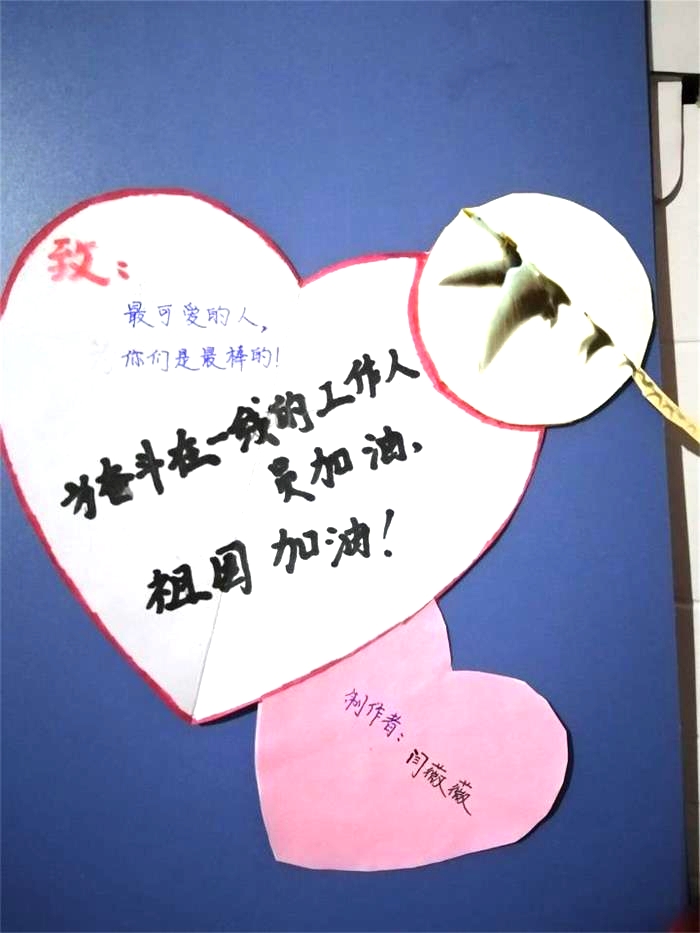 致：
最可爱的人，
你们是最棒的！
为奋斗在一线的工作人
员加油、
祖国加油！
制作者：
闫薇薇